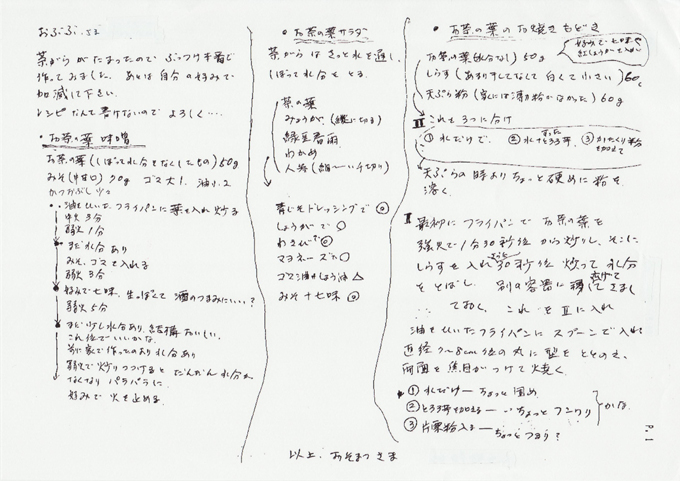 茶がらがたまったので ぶっつけ本番で
作ってみました。あとは自分の好みで
加減して下さい。
レシピなんて書けないので よろしく…
・お茶の葉味噌
お茶の葉(しぼって水分をなくしたもの) 50g
みそ(甘口) 70g ゴマ大1. 油小2
かつおぶし 少々
・油をひいたフライパンに葉を入れ炒る
中火3分
弱火1分
まだ水分あり
みそ、ゴマを入れる
弱火3分
好みで七味、 酒のつまみにいい?
弱火5分
まだ少し水分あり、結構おいしい。
これ位でいいかな。
前に家で作ったのより水分あり
弱火で炒りつづけると だんだん水分が
なくなり パラパラに
好みで火を止める
・お茶の葉サラダ
茶がらは さっと水を通し
しぼって水分をとる。
茶の葉
みょうが (縦に切る)
緑豆春雨
わかめ
人参 千切り)
青じそドレッシングで ◎
しょうがで ○
マヨネーズ
ゴマ油+しょうゆ △
みそ+七味 ◎
・お茶の葉のお焼きもどき
好みで七味や
紅しょうがを入れ
お茶の葉(水分なし) 50g
しらす (あまり干してなくて白くて小さい) 60g
天ぷら粉 (家には薄力粉がなかった) 60g
Ⅱ これを3つに分け
①水だけで. ②水+とろろ芋 ③かたくり粉
加えて
天ぷらの時よりちょっと硬めに粉を
溶く.
Ⅰ 最初に フライパンで お茶の葉を
強火で1分30秒位から炒りし、そこに
しらすを入れ30秒位 炒って 水分
をとばし. 別の容器に移してさまし
ておく. これをⅡに入れ
油をひいたフライパンに スプーンで入れ
直径7〜8cm位の丸に型をととのえ、
両面を焦目がつけて焼く.
①水だけ― ちょっと固め
②とろろ芋加える― ちょっとフンワリ
③片栗粉入る― ちょっと ?
かな
P.1
以上. おそまつさま